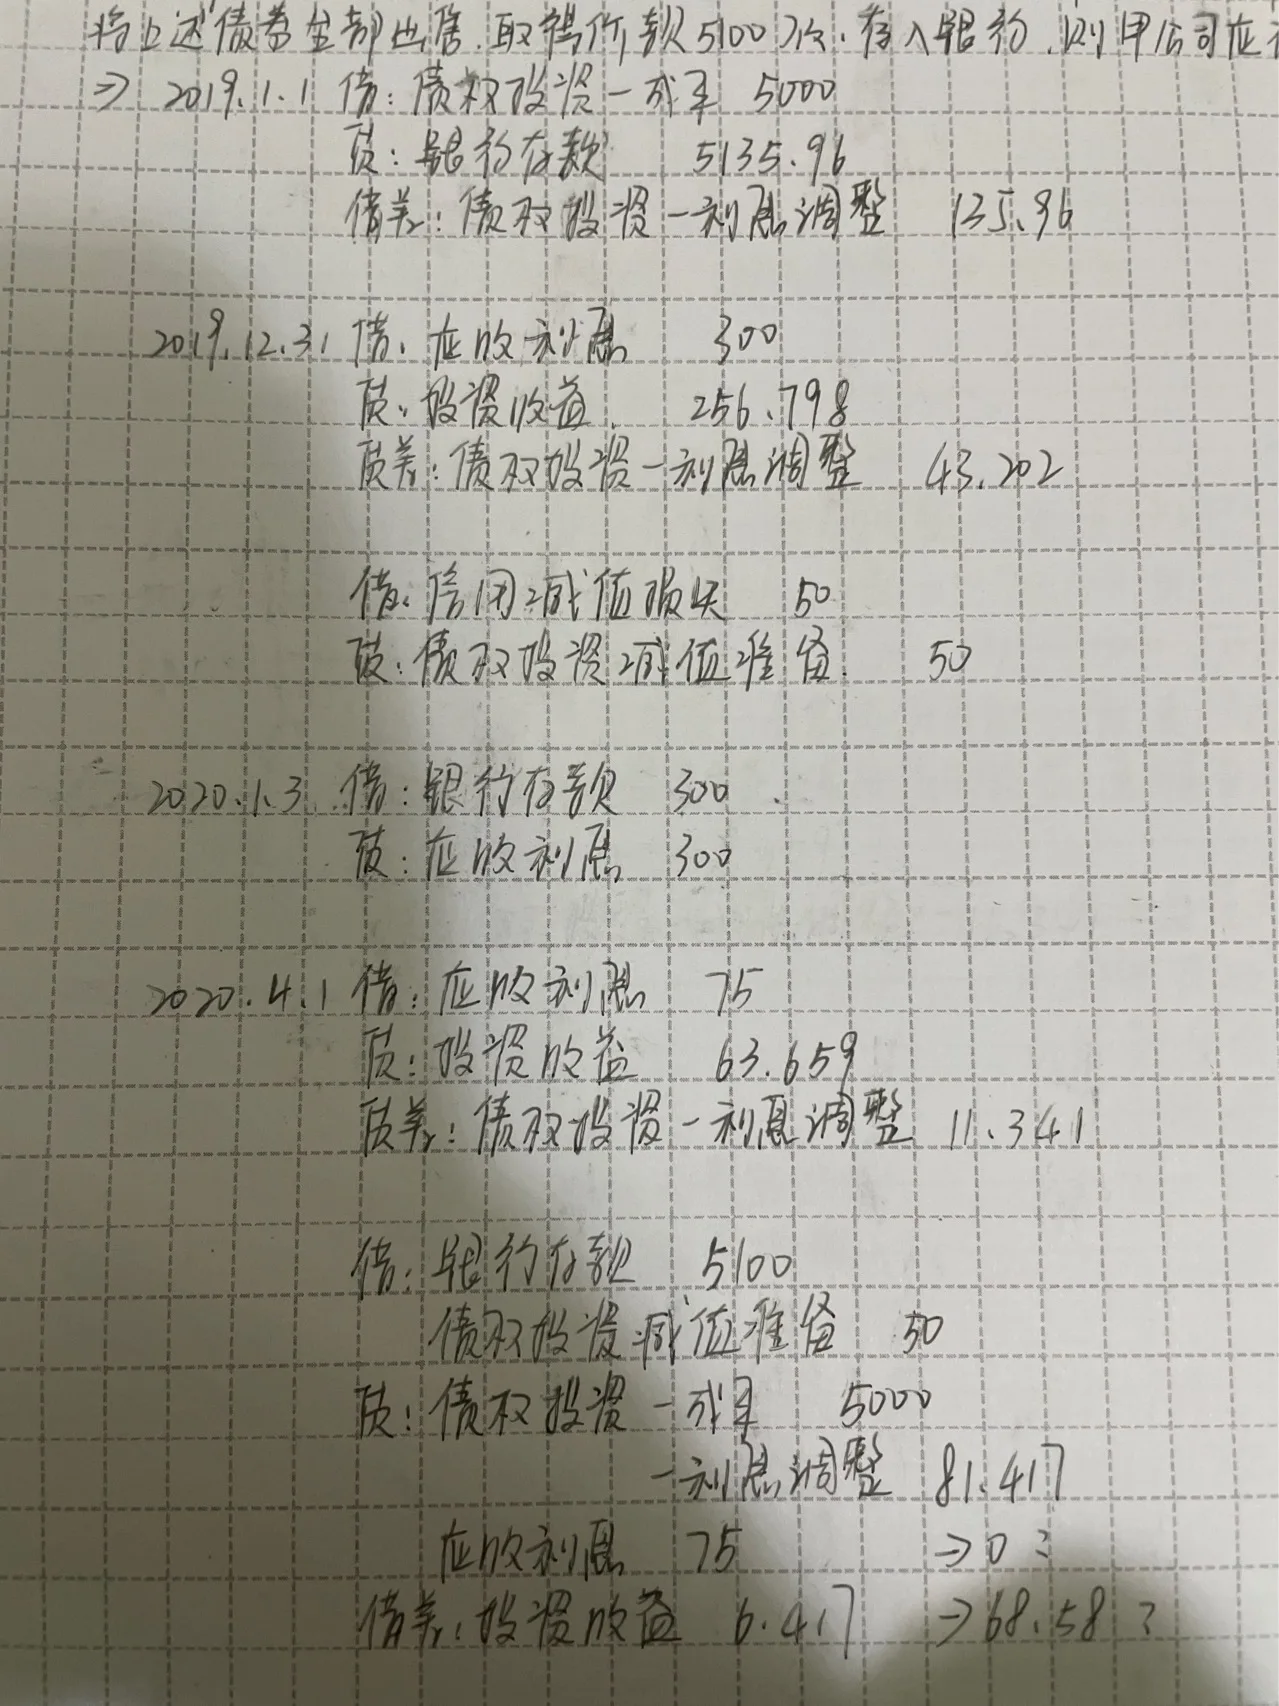 将上述债券全部出售.取得价款5100万.存入银行.则甲公司应
⇒ 2019.1.1 借:债权投资-成本 5000
贷:银行存款 5135.96
借差:债权投资-利息调整 135.96
2019.12.31 借:应收利息 300
贷:投资收益 256.798
贷差:债权投资-利息调整 43.202
借:信用减值损失 50
贷:债权投资减值准备 50
2020.1.3 借:银行存款 300
贷:应收利息 300
2020.4.1 借:应收利息 75
贷:投资收益 63.659
贷差:债权投资-利息调整 11.341
借:银行存款 5100
债权投资减值准备 50
贷:债权投资-成本 5000
-利息调整 81.417
应收利息 75 →0?
借差:投资收益 6.417 →68.58?